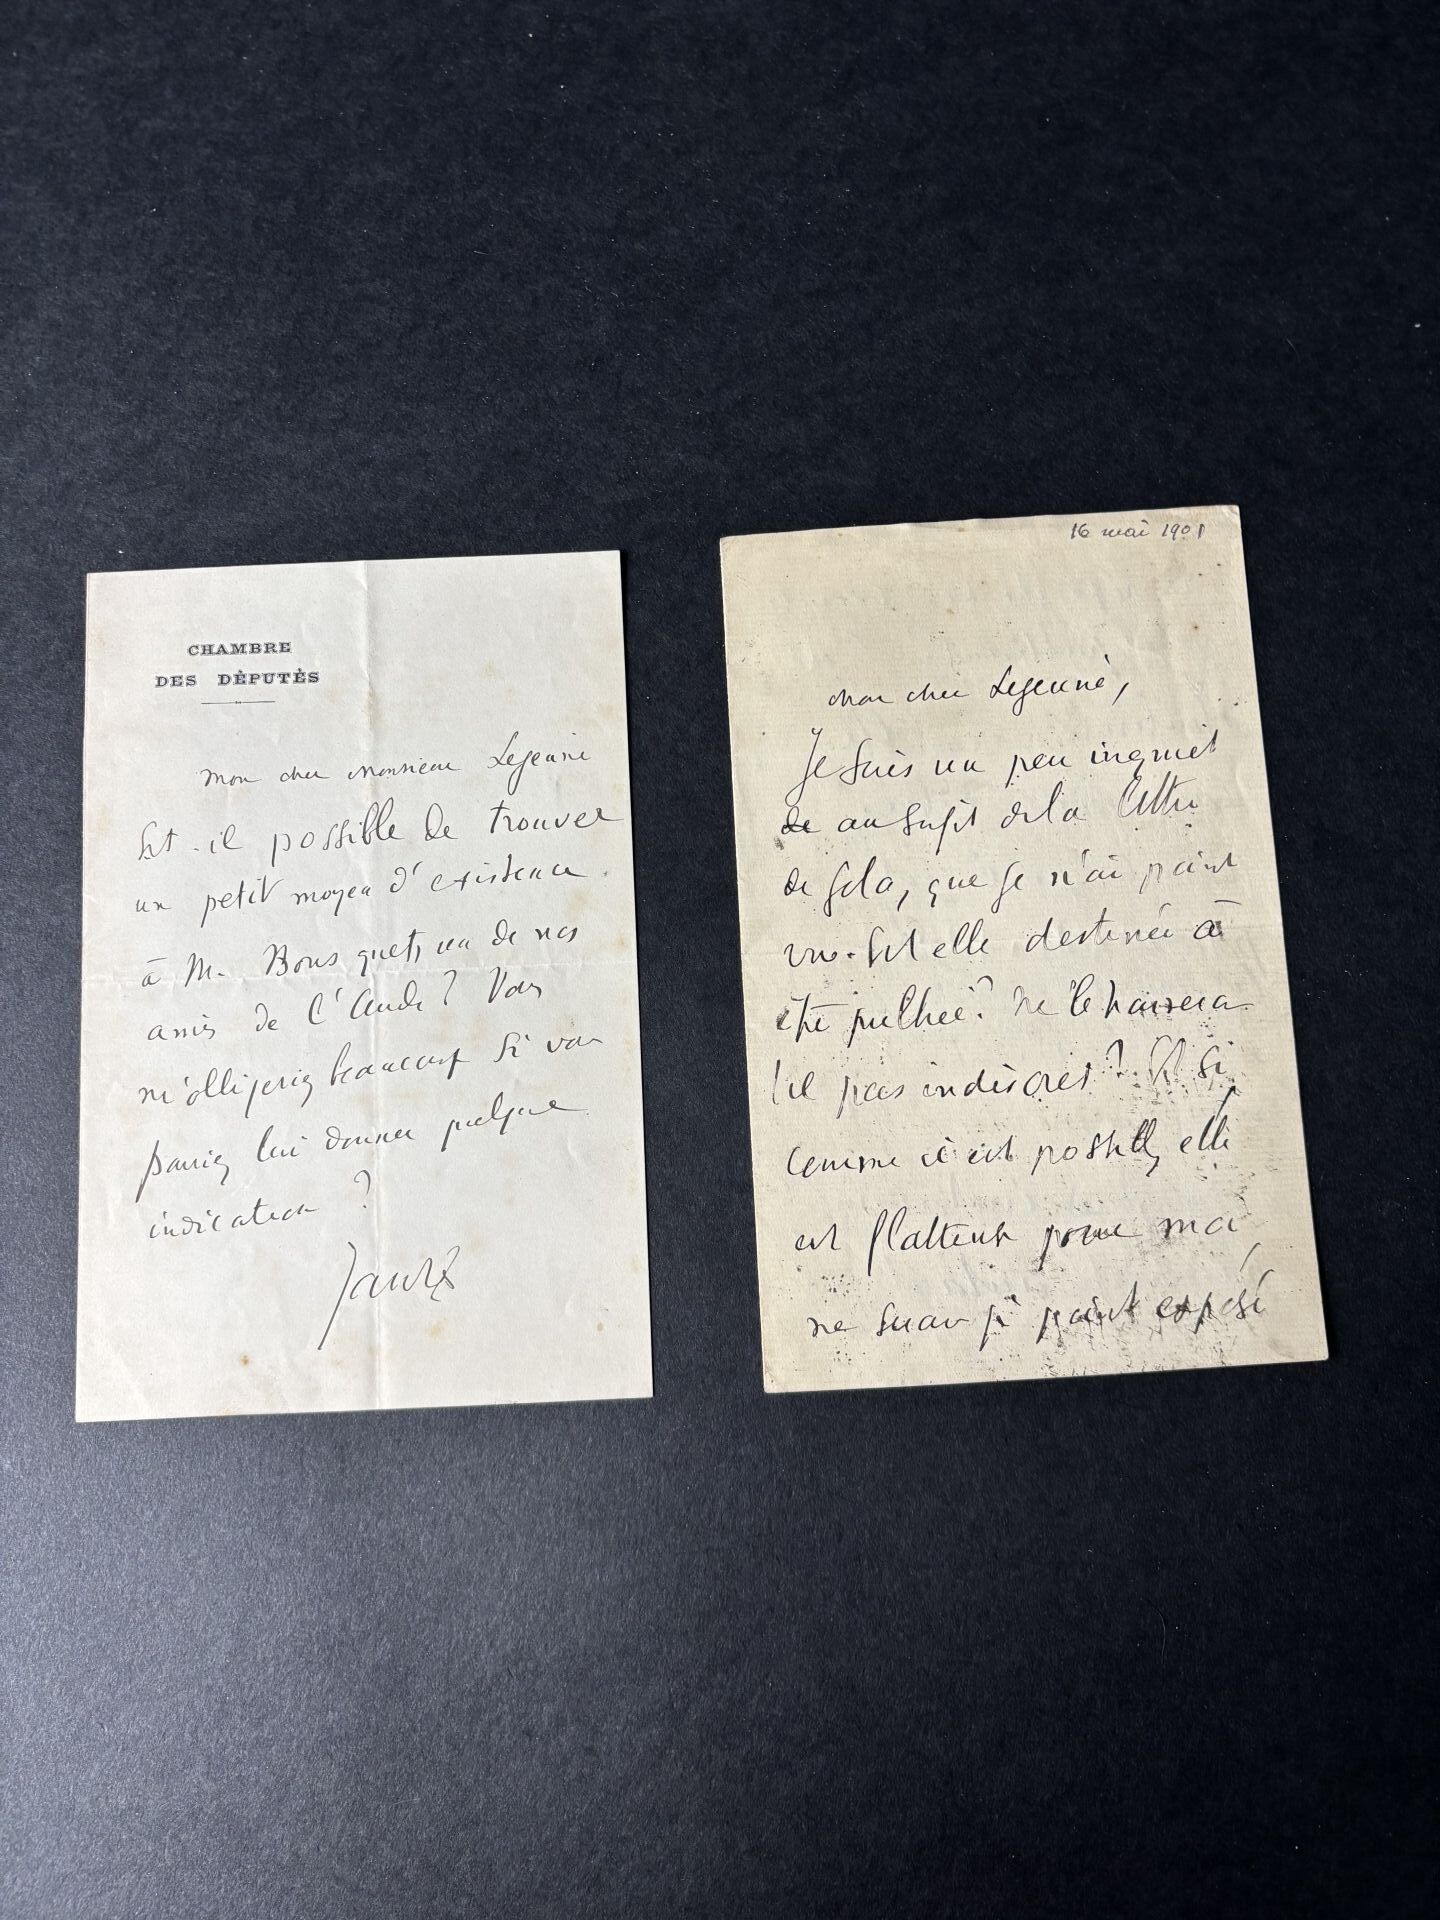 CHAMBRE
DES DÉPUTÉS
Mon cher Monsieur Lejeune
Est-il possible de trouver
un petit moyen d'existence
à M. Bousquet, un de nos
amis de l'Aude? Vous
m'obligeriez beaucoup si vous
pouviez lui donner quelque
indication?
Jaurès
16 mai 1901
Mon cher Lejeune,
Je suis un peu inquiet
de au sujet de la lettre
de Zola, que je n'ai point
vue. Est elle destinée à
être publiée? Ne le
il pas indiscret? Et si,
comme il est possible, elle
est flatteuse pour moi,
ne serai je point exposé